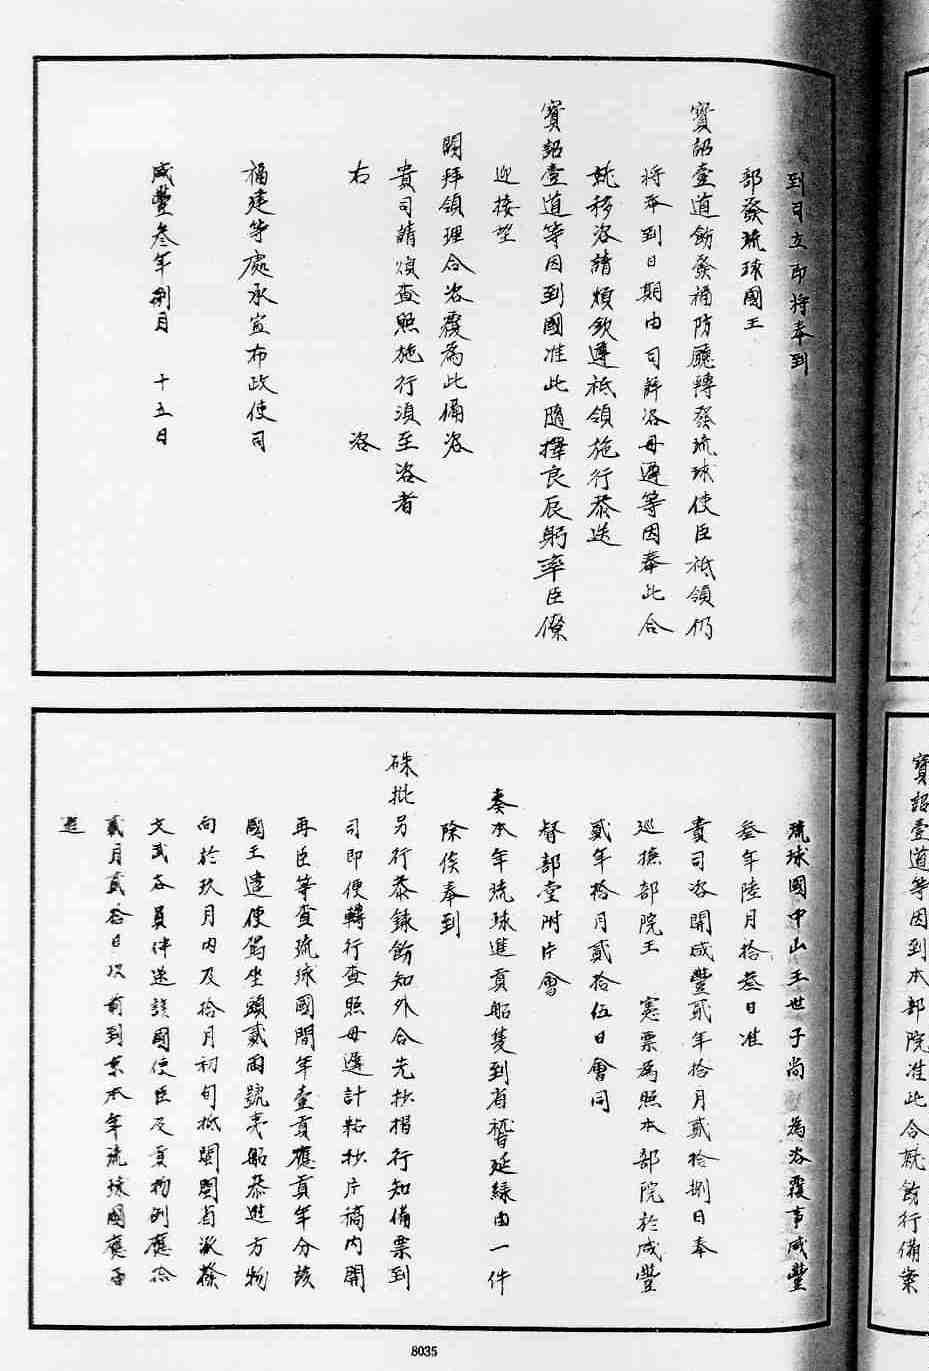 到日立即將奉到
部發琉球國王
寳詔壹道飭發福防廳轉發琉球使臣祗領仍
將奉到日期由司詳咨毋遲等因奉此合
就移咨請煩欽遵祗領施行恭送
寳詔壹道等因到國准此隨擇良辰躬率臣僚
迎接望
闕拜領理合咨覆為此備咨
貴司請煩查照施行須至咨者
右 咨
福建等處承宣布政使司
咸豐叁年捌月 十五日
琉球國中山王世子尚 為咨覆事咸豐
叁年陸月拾叁日准
貴司咨開咸豐貳年拾月貳拾捌日奉
巡撫部院王 憲票為照本部院於咸豐
貳年拾月貳拾伍日會同
督部堂附片會
奏本年琉球進貢船隻到省稽延緣由一件
除俟奉到
硃批另行恭錄飭知外合先抄摺行知備票到
司即便轉行查照毋遲計粘抄片稿內開
再臣等查琉球國間年壹貢應貢年分該
國王遣使駕坐頭貳兩號夷船恭進方物
向於玖月內及拾月初旬抵閩閩省派撥
文武各員伴送該國使臣及貢物例應於
貳月貳拾日以前到京本年琉球國應否
進
寳詔壹道等因到本部院准此合就飭行備案
8035